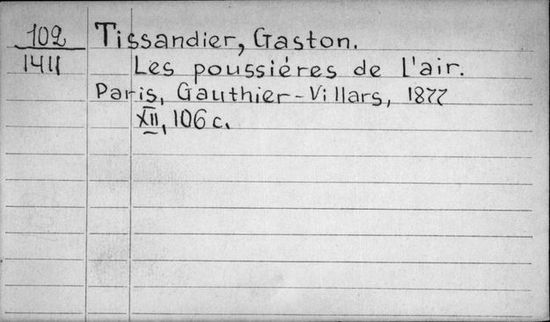 102 Tissandier, Gaston.
1411 Les poussiéres de l'air.
Paris, Gauthier-Villars, 1877
XII, 106 c.